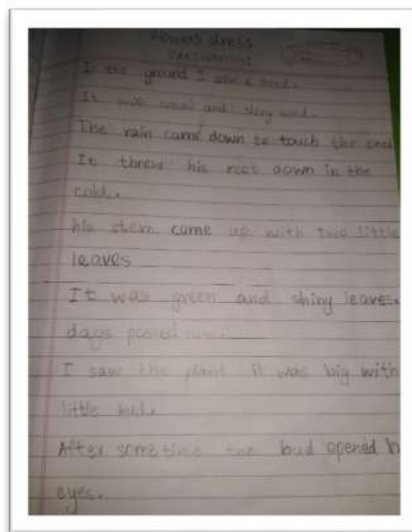 Flowers dress
In the ground I saw a seed.
It was small and shiny seed.
The rain came down to touch the seed
It threw his root down in the
cold.
his stem came up with two little
leaves
It was green and shiny leaves.
days passed now.
I saw the plant it was big with
little bud.
After sometime the bud opened
eyes.